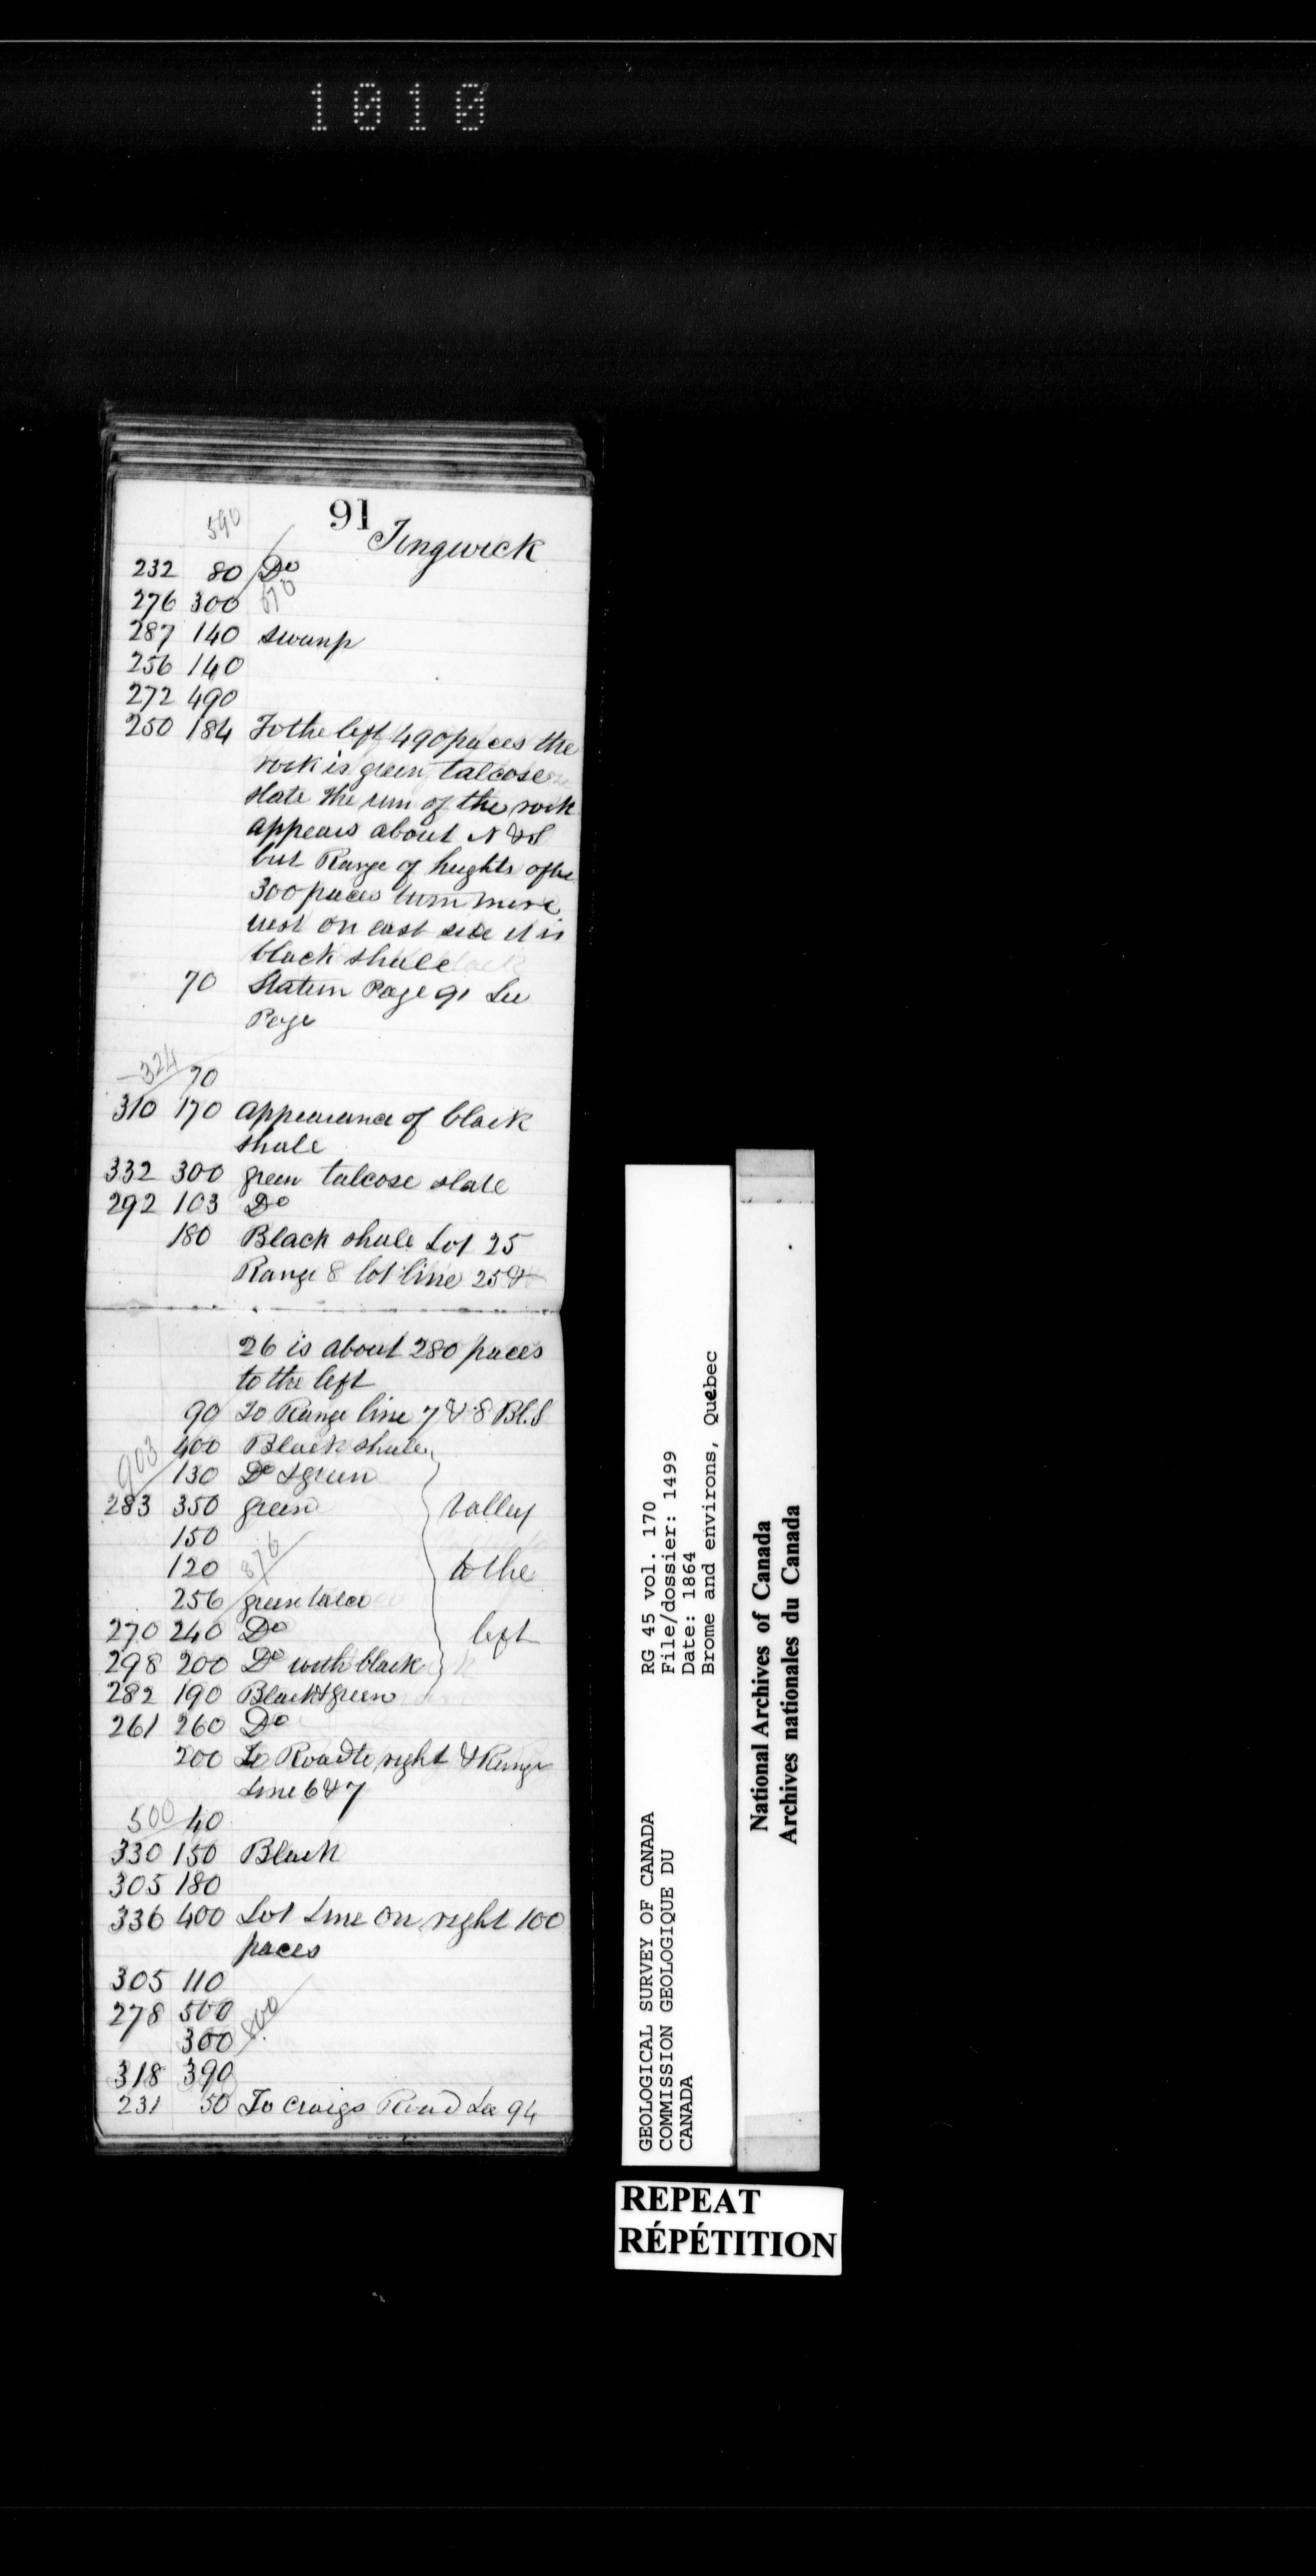 1010
91
590
Tingwick
232 80 Do
276 300 670
287 140 swamp
256 140
272 490
250 184 To the left 490 paces the
rock is green talcose
slate the run of the rock
appears about N & S
but Range of heights after
300 paces turn more
west on east side it is
black shale
70 Station Page 91 See
Page
324 70
310 170 appearance of black
shale
332 300 green talcose slate
292 103 Do
180 Black shale Lot 25
Range 8 lot line 25 &
26 is about 280 paces
to the left
90 To Range line 7 & 8 Bl. S
400 Black shale
903 130 Do & green
283 350 green valley
150
120 876 to the
256 green talco
270 240 Do left
298 200 Do with black
282 190 Black & green
261 260 Do
200 To Road to right & Range
Line 6 & 7
500 40
330 150 Black
305 180
336 400 Lot Line on right 100
paces
305 110
278 500
300 800
318 390
231 50 To Craigs Road See 94
GEOLOGICAL SURVEY OF CANADA RG 45 vol. 170
COMMISSION GEOLOGIQUE DU File/dossier: 1499
CANADA Date: 1864
Brome and environs, Quebec
National Archives of Canada
Archives nationales du Canada
REPEAT
RÉPÉTITION